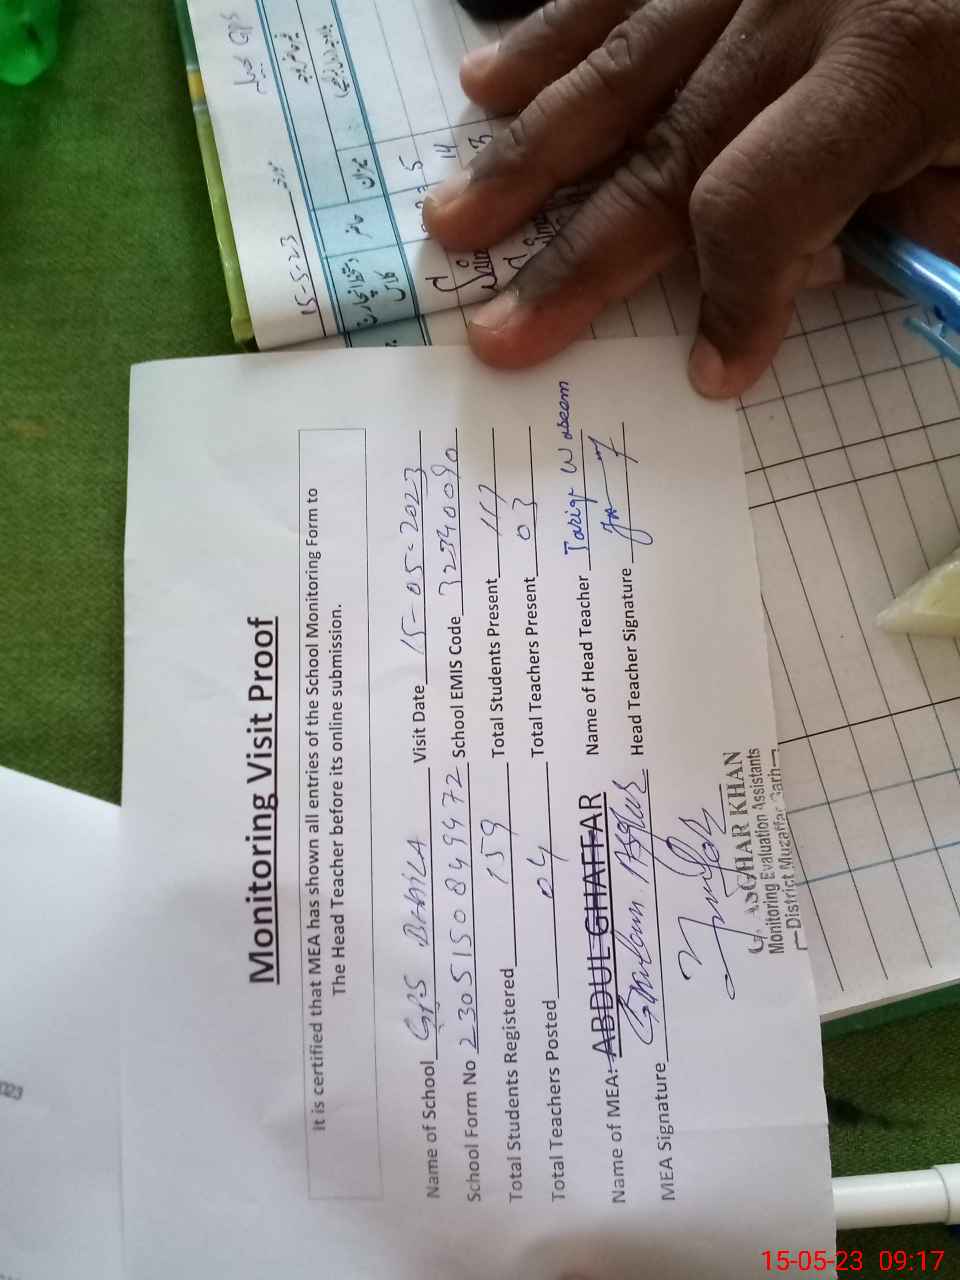 Monitoring Visit Proof
It is certified that MEA has shown all entries of the School Monitoring Form to
The Head Teacher before its online submission.
Name of School GPS Visit Date 15-05-2023
School Form No 2305150849472 School EMIS Code 32340090
Total Students Registered 159 Total Students Present 117
Total Teachers Posted 04 Total Teachers Present 03
Name of MEA: ABDUL GHAFFAR Name of Head Teacher Tariq Waseem
Ghulam Asghar
MEA Signature Head Teacher Signature
G. ASGHAR KHAN
Monitoring Evaluation Assistants
District Muzaffar Garh
15-5-23
GPS
حاضر
5
14
3
023
15-05-23 09:17